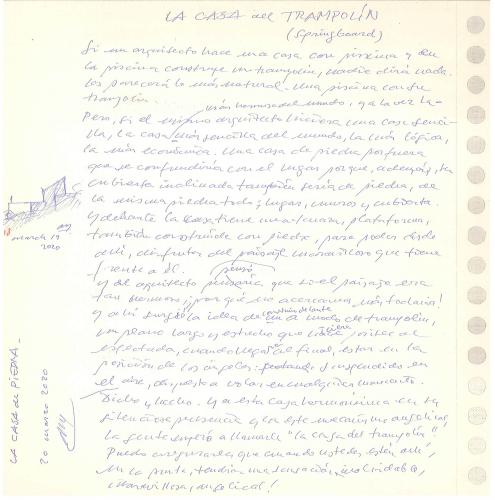 LA CASA del TRAMPOLÍN
(Springboard)
Si un arquitecto hace una casa con piscina y en
la piscina construye un trampolín, nadie dirá nada.
Les parecerá lo más natural. Una piscina con su
trampolín.
más hermosa del mundo, y a la vez la
Pero, si el mismo arquitecto hiciera una casa senci-
lla, la casa más sencilla del mundo, la más lógica,
la más económica. Una casa de piedra por fuera
que se confundiría con el lugar porque, además, su
cubierta inclinada también sería de piedra, de
la misma piedra todo; lugar, muros y cubierta.
Y delante la casa tiene una terraza, plataforma,
también construida con piedra, para poder desde
allí, disfrutar del paisaje maravilloso que tiene
frente a él.
pensó
Y el arquitecto que si el paisaje era
tan hermoso ¿por qué no acercarnos más todavía?
Y ahí surgió la idea de a modo de trampolín,
un plano largo y estrecho que hiciera sentir al
espectador, cuando llegase al final, estar en la
posición de los ángeles: suspendidos en
el aire, dispuestos a volar en cualquier momento.
Dicho y hecho. Y a esta casa hermosísima en su
silenciosa presencia y con este mecanismo angelical,
la gente empezó a llamarla "la casa del trampolín".
Puedo asegurarles que cuando ustedes estén allí,
en la punta, tendrán una sensación inolvidable,
maravillosa, angelical!
march 19
2020
LA CASA de PIEDRA_
20 marzo 2020